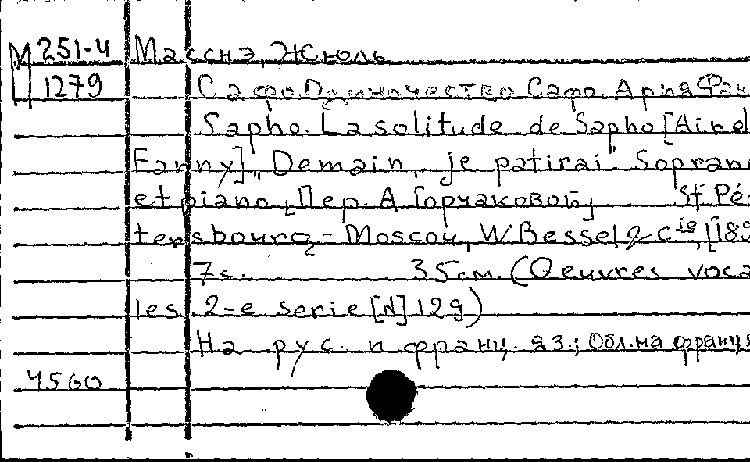 М 251-4 Массне, Жюль
1279 Сафо. Одиночество Сафо. Ария Фан
Sapho. La solitude de Sapho [Air d
Fanny]. "Demain, je patirai" Sopran
et piano, [Пер. А. Горчаковой], St Pé-
tersbourg-Moscou, W. Bessel & Cie, [189
7s. 35 см. (Oeuvres voca
les. 2-e serie [N] 129)
На рус. и франц. яз.; Обл. на франц. я
4560